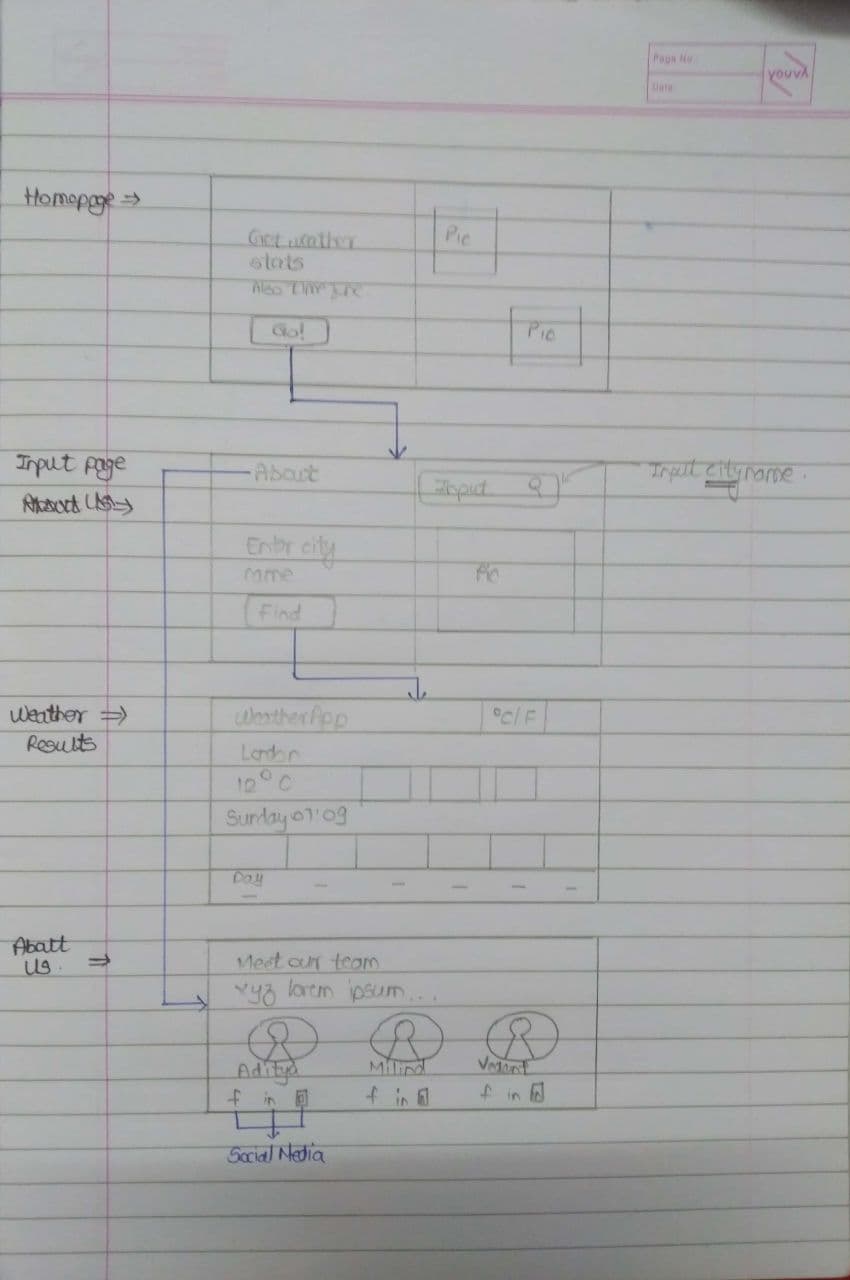 Page No.
Date
YOUVA
Homepage ⇒
Get weather
stats
Also
Go!
Pic
Pic
Input page
About Us →
About
Input
Input city name.
Enter city
name
Find
Pic
Weather ⇒
Results
WeatherApp
°C/F
London
12°C
Sunday 07:09
Day
Abatt
Us. ⇒
Meet our team
xyz lorem ipsum...
Aditya Milind
f in f in f in
Social Media